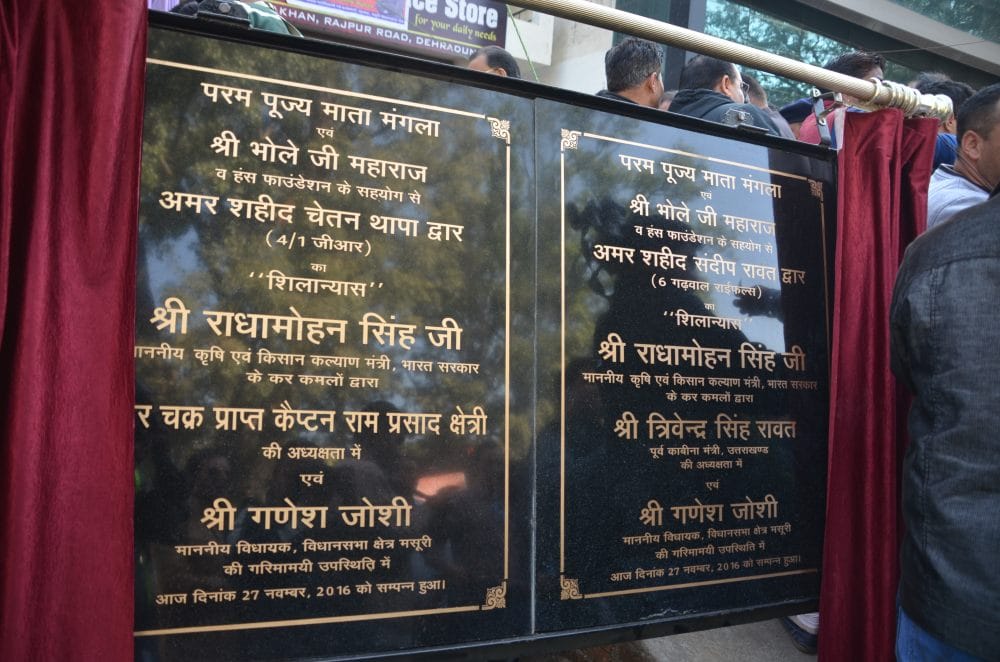 ce Store
for your daily needs
KHAN, RAJPUR ROAD, DEHRADUN
परम पूज्य माता मंगला
एवं
श्री भोले जी महाराज
व हंस फाउंडेशन के सहयोग से
अमर शहीद चेतन थापा द्वार
(4/1 जीआर)
का
"शिलान्यास"
श्री राधामोहन सिंह जी
माननीय कृषि एवं किसान कल्याण मंत्री, भारत सरकार
के कर कमलों द्वारा
र चक्र प्राप्त कैप्टन राम प्रसाद क्षेत्री
की अध्यक्षता में
एवं
श्री गणेश जोशी
माननीय विधायक, विधानसभा क्षेत्र मसूरी
की गरिमामयी उपस्थिति में
आज दिनांक 27 नवम्बर, 2016 को सम्पन्न हुआ।
परम पूज्य माता मंगला
एवं
श्री भोले जी महाराज
व हंस फाउंडेशन के सहयोग से
अमर शहीद संदीप रावत द्वार
(6 गढ़वाल राईफल्स)
का
"शिलान्यास"
श्री राधामोहन सिंह जी
माननीय कृषि एवं किसान कल्याण मंत्री, भारत सरकार
के कर कमलों द्वारा
श्री त्रिवेन्द्र सिंह रावत
पूर्व काबीना मंत्री, उत्तराखण्ड
की अध्यक्षता में
एवं
श्री गणेश जोशी
माननीय विधायक, विधानसभा क्षेत्र मसूरी
की गरिमामयी उपस्थिति में
आज दिनांक 27 नवम्बर, 2016 को सम्पन्न हुआ।